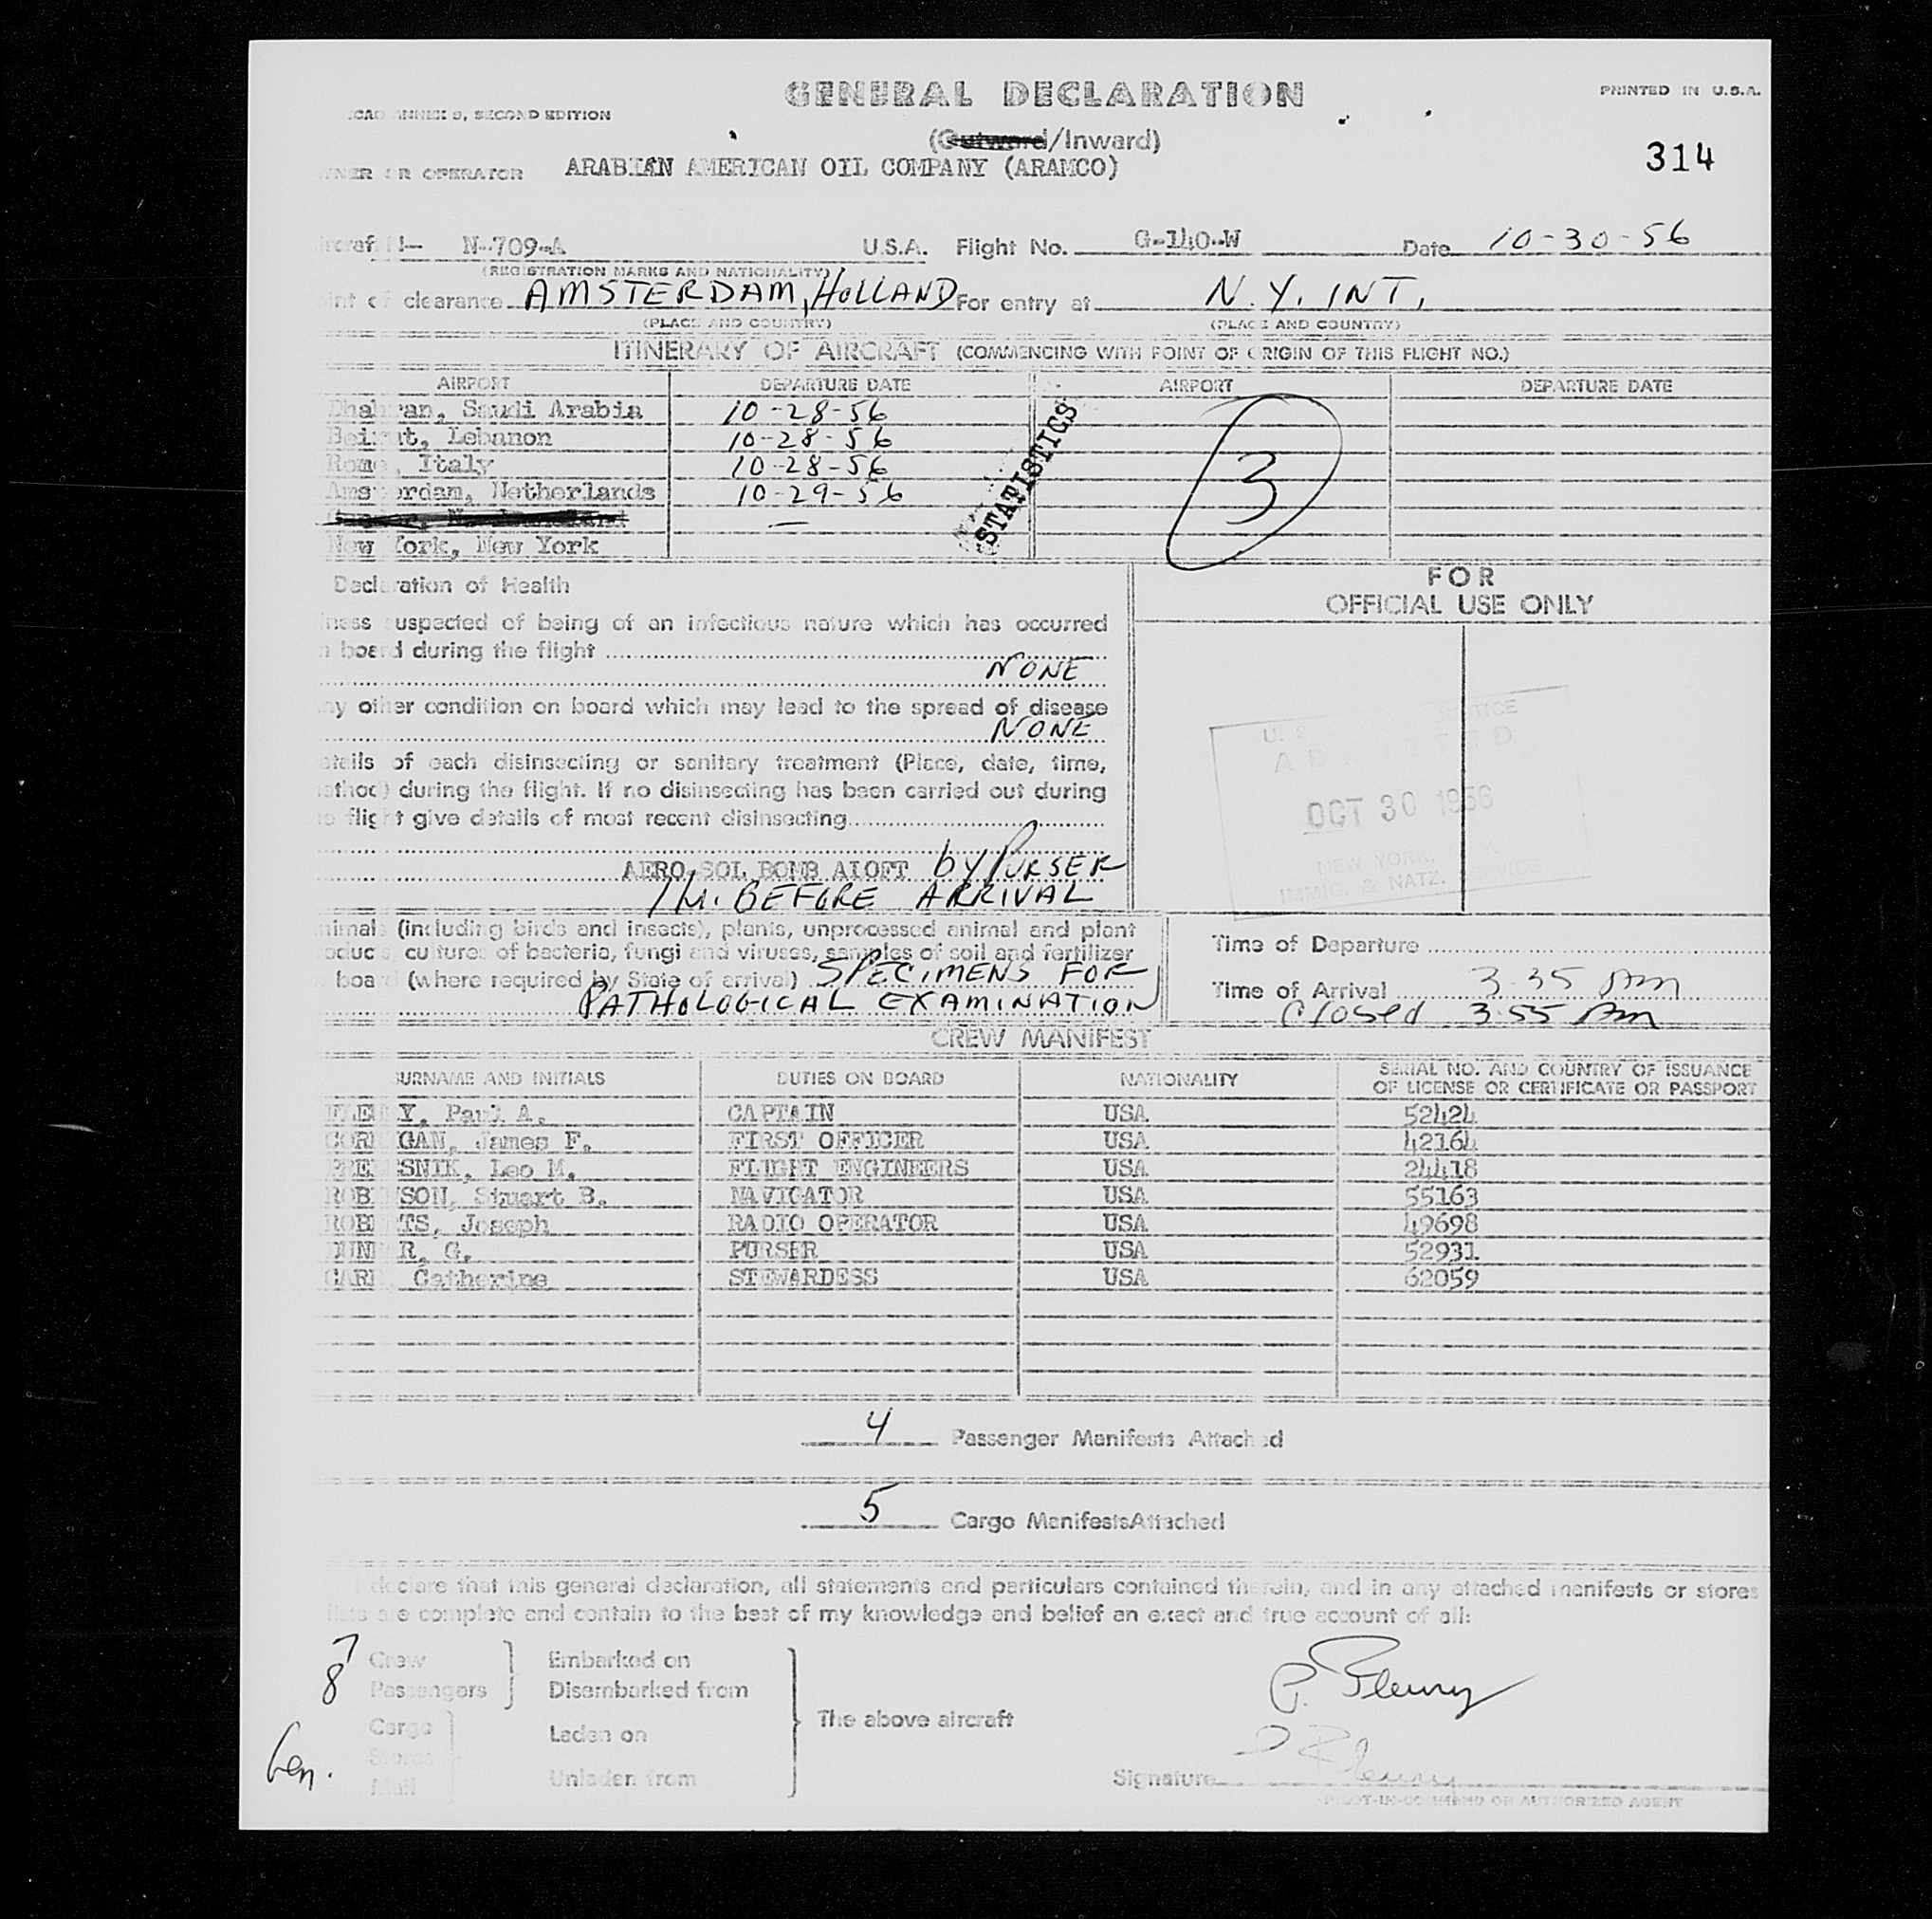 GENERAL DECLARATION
PRINTED IN U.S.A.
SECOND EDITION
(Outward/Inward)
314
OR OPERATOR ARABIAN AMERICAN OIL COMPANY (ARAMCO)
N-709-A U.S.A. Flight No. G-140-W Date 10-30-56
(REGISTRATION MARKS AND NATIONALITY)
clearance AMSTERDAM, HOLLAND For entry at N.Y. INT.
(PLACE AND COUNTRY) (PLACE AND COUNTRY)
ITINERARY OF AIRCRAFT (COMMENCING WITH POINT OF ORIGIN OF THIS FLIGHT NO.)
AIRPORT DEPARTURE DATE AIRPORT DEPARTURE DATE
Dhahran, Saudi Arabia 10-28-56
Beirut, Lebanon 10-28-56
Rome, Italy 10-28-56
Amsterdam, Netherlands 10-29-56
—
New York, New York
STATISTICS
3
Declaration of Health
FOR
OFFICIAL USE ONLY
suspected of being of an infectious nature which has occurred
board during the flight
NONE
other condition on board which may lead to the spread of disease
NONE
of each disinsecting or sanitary treatment (Place, date, time,
during the flight. If no disinsecting has been carried out during
flight give details of most recent disinsecting
AERO-SOL BOMB ALOFT by PURSER
1 H. BEFORE ARRIVAL
ADMITTED
OCT 30 1956
NEW YORK, N.Y.
IMMIG. & NATZ. SERVICE
(including birds and insects), plants, unprocessed animal and plant
cultures of bacteria, fungi and viruses, samples of soil and fertilizer
board (where required by State of arrival) SPECIMENS FOR
PATHOLOGICAL EXAMINATION
Time of Departure
Time of Arrival 3:35 Am
Closed 3:55 Am
CREW MANIFEST
SURNAME AND INITIALS DUTIES ON BOARD NATIONALITY SERIAL NO. AND COUNTRY OF ISSUANCE
OF LICENSE OR CERTIFICATE OR PASSPORT
FLEURY, Paul A. CAPTAIN USA 52424
CORRIGAN, James F. FIRST OFFICER USA 42164
Leo M. FLIGHT ENGINEERS USA 24418
Stuart B. NAVIGATOR USA 55163
ROBERTS, Joseph RADIO OPERATOR USA 49698
G. PURSER USA 52931
Catherine STEWARDESS USA 62059
4 Passenger Manifests Attached
5 Cargo Manifests Attached
I declare that this general declaration, all statements and particulars contained therein, and in any attached manifests or stores
lists are complete and contain to the best of my knowledge and belief an exact and true account of all:
7 Crew Embarked on
8 Passengers Disembarked from
Cargo Laden on
The above aircraft
Stores
Gen.
Mail Unladen from
P. Fleury
P Fleury
Signature
PILOT-IN-COMMAND OR AUTHORIZED AGENT